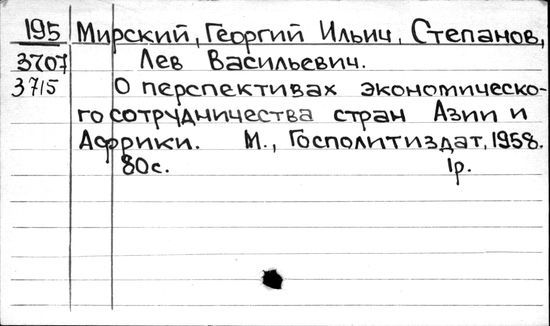 195 Мирский, Георгий Ильич, Степанов,
3707 Лев Васильевич.
3715 О перспективах экономическо-
го сотрудничества стран Азии и
Африки. М., Госполитиздат, 1958.
80с. 1р.